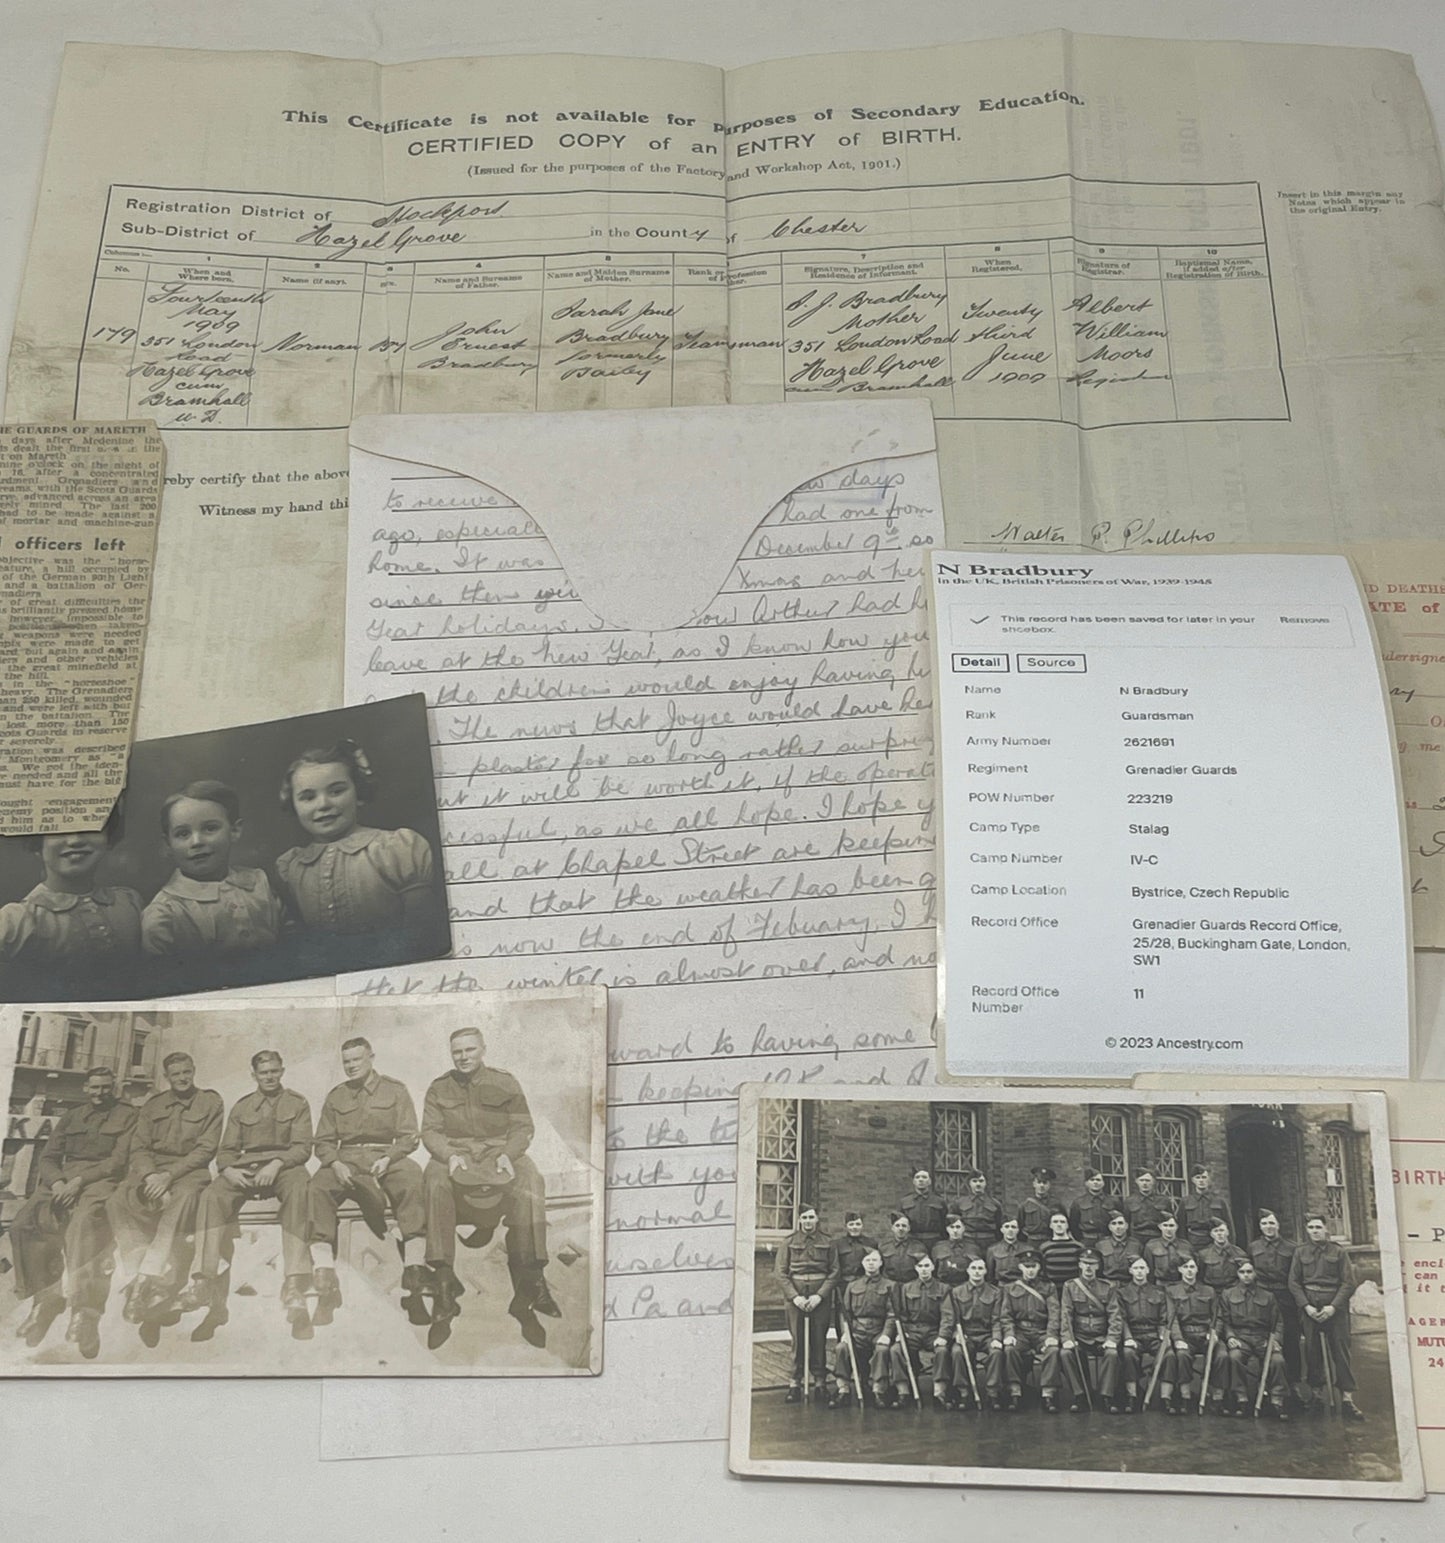 This Certificate is not available for purposes of Secondary Education.
CERTIFIED COPY of an ENTRY of BIRTH.
(Issued for the purposes of the Factory and Workshop Act, 1901.)
Insert in this margin any
Notes which appear in
the original Entry.
Registration District of Stockport
Sub-District of Hazel Grove in the County of Chester
Columns:—
1 2 3 4 5 7 8 9 10
No. When and Where born. Name (if any). Name and Surname of Father. Name and Maiden Surname of Mother. Rank or Profession Signature, Description and Residence of Informant. When Registered. Signature of Registrar. Baptismal Name, if added after Registration of Birth.
179
Fourteenth
May
1909
351 London
Road
Hazel Grove
cum
Bramhall
U.D.
Norman
Boy
John
Ernest
Bradbury
Sarah Jane
Bradbury
formerly
Bailey
Teamsman
S. J. Bradbury
Mother
351 London Road
Hazel Grove
cum Bramhall
Twenty
third
June
1909
Albert
William
Moors
Registrar
reby certify that the above
Witness my hand thi
Walter P. Phillips
E GUARDS OF MARETH
days after Medenine the
ds dealt the first in the
t on Mareth
nine o'clock on the night of
16, after a concentrated
rdment, Grenadiers and
reams, with the Scots Guards
rve, advanced across an area
ely mined. The last 200
had to be made against a
f mortar and machine-gun
officers left
bjective was the "horse-
eature, a hill occupied by
of the German 90th Light
and a battalion of Ger-
nadiers
of great difficulties the
s brilliantly pressed home
however, impossible to
positions when taken.
weapons were needed
mpts were made to get
ard, but again and again
iers and other vehicles
the great minefield at
the hill.
s in the "horseshoe"
heavy. The Grenadiers
an 250 killed, wounded
and were left with but
n the battalion. The
lost more than 150
cots Guards in reserve
r severely.
ration was described
Montgomery as "a
s. We got the iden-
e needed and all the
must have for the big
ought engagement
enemy position an
d him as to whe
would fall
to receive few days
ago, especiall had one from
home. It was December 9th, so
since then Xmas and New
Year holidays. I Arthur had h
leave at the New Year, as I know how you
the children would enjoy having hi
The news that Joyce would have her
plaster for so long rather surpri
ut it will be worth it, if the operati
cessful, as we all hope. I hope y
all at Chapel Street are keeping
and that the weather has been g
is now the end of Febuary, I h
that the winter is almost over, and no
ward to having some
keeping O.K. and
to the
with you
normal
urselves
d Pa and
N Bradbury
in the UK, British Prisoners of War, 1939-1945
This record has been saved for later in your shoebox. Remove
Detail Source
Name N Bradbury
Rank Guardsman
Army Number 2621691
Regiment Grenadier Guards
POW Number 223219
Camp Type Stalag
Camp Number IV-C
Camp Location Bystrice, Czech Republic
Record Office Grenadier Guards Record Office,
25/28, Buckingham Gate, London,
SW1
Record Office Number 11
© 2023 Ancestry.com
D DEATHS
ATE of
dersigne
ng me
KA
BIRTH
- P
encl
can
it t
AGER
MUTU
24